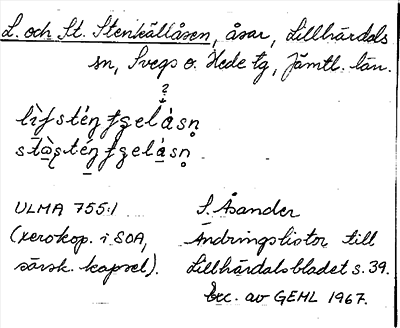 L. och St. Stenkällåsen, åsar, Lillhärdals
sn, Svegs o. Hede tg, Jämtl. län.
?
ULMA 755:1
(xerokop. i SOA,
särsk. kapsel).
S. Åsander
Ändringslistor till
Lillhärdalsbladet s. 39.
Exc. av GEHL 1967.